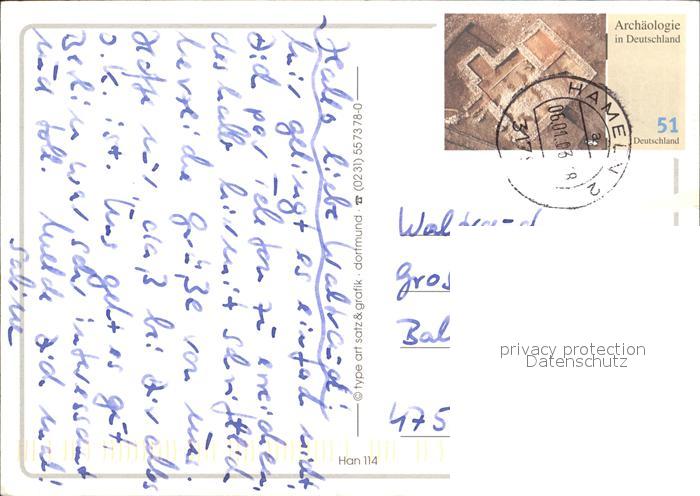 Hallo liebe Waltraud!
Mir gelingt es einfach nicht
Dich per Telefon zu erreichen,
deshalb hiermit schriftlich
herzliche Grüße von uns.
Hoffe nur daß bei Dir alles
o.k. ist. Uns geht es gut,
Berlin war sehr interessant
und toll. Melde Dich mal!
Sabine
© type art satz & grafik · dortmund · ☎ (0231) 55 73 78-0
Han 114
Archäologie
in Deutschland
51
Deutschland
HAMELN 2
06.01.03
a
Waltraud
Gros
Bal
475
privacy protection
Datenschutz